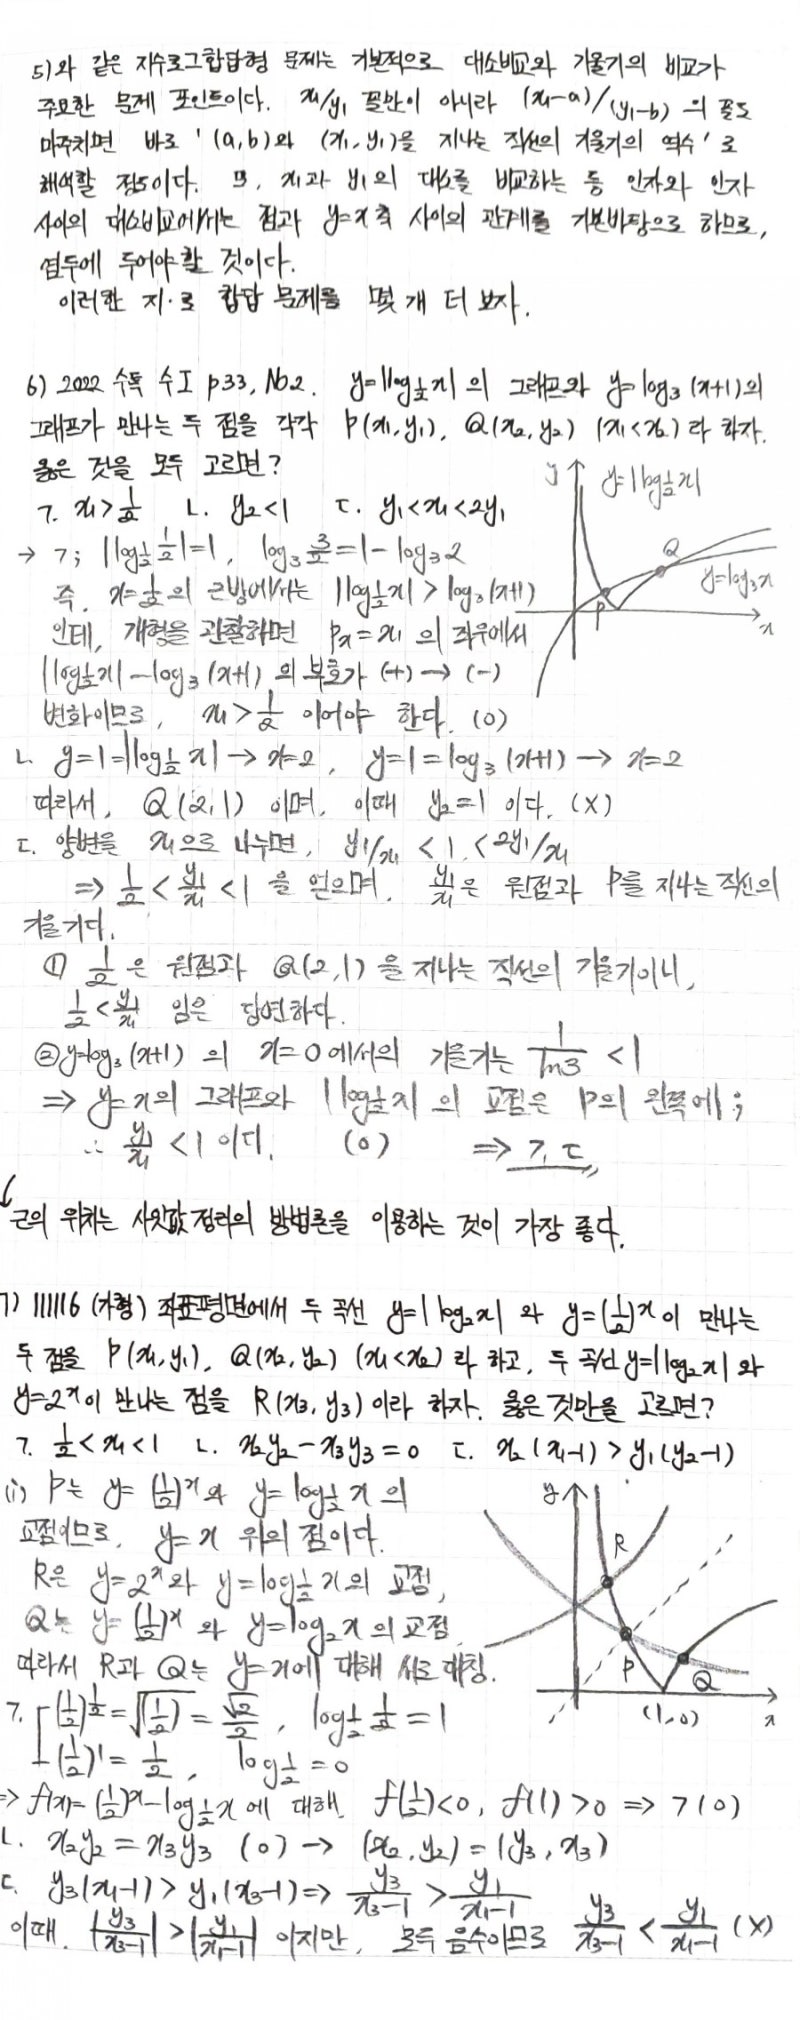 5)와 같은 지수로그합답형 문제는 기본적으로 대소비교와 기울기의 비교가
주요한 문제 포인트이다. x₁/y₁ 꼴만이 아니라 (x₁-a)/(y₁-b) 의 꼴도
마주치면 바로 '(a,b)와 (x₁,y₁)을 지나는 직선의 기울기의 역수'로
해석할 정도이다. 또, x₁과 y₁의 대소를 비교하는 등 인자와 인자
사이의 대소비교에서는 점과 y=x축 사이의 관계를 기본바탕으로 하므로,
염두에 두어야 할 것이다.
이러한 지·로 합답 문제를 몇 개 더 보자.
6) 2022 수특 수I p33, No2. y=|log_{1/2} x| 의 그래프와 y=log₃(x+1)의
그래프가 만나는 두 점을 각각 P(x₁,y₁), Q(x₂,y₂) (x₁<x₂)라 하자.
옳은 것을 모두 고르면?
ㄱ. x₁>1/2 ㄴ. y₂<1 ㄷ. y₁<x₁<2y₁
y y=|log_{1/2} x|
→ ㄱ; |log_{1/2} 1/2|=1, log₃ 3/2=1-log₃2
Q
즉, x=1/2의 근방에서는 |log_{1/2} x| > log₃(x+1)
y=log₃x
P x
인데, 개형을 관찰하면 Pₓ=x₁ 의 좌우에서
|log_{1/2} x|-log₃(x+1) 의 부호가 (+)→(-)
변화이므로, x₁>1/2 이어야 한다. (O)
ㄴ. y=1=|log_{1/2} x|→x=2, y=1=log₃(x+1)→x=2
따라서, Q(2,1) 이며, 이때 y₂=1 이다. (X)
ㄷ. 양변을 x₁으로 나누면, y₁/x₁ < 1 < 2y₁/x₁
⇒ 1/2 < y₁/x₁ < 1 을 얻으며, y₁/x₁은 원점과 P를 지나는 직선의
기울기다.
① 1/2 은 원점과 Q(2,1)을 지나는 직선의 기울기이니,
1/2 < y₁/x₁ 임은 당연하다.
② y=log₃(x+1) 의 x=0에서의 기울기는 1/ln3 < 1
⇒ y=x의 그래프와 |log_{1/2} x| 의 교점은 P의 왼쪽에;
∴ y₁/x₁ < 1 이다. (O) ⇒ ㄱ, ㄷ
근의 위치는 사잇값 정리의 방법론을 이용하는 것이 가장 좋다.
7) 111116 (가형) 좌표평면에서 두 곡선 y=|log₂x| 와 y=(1/2)^x이 만나는
두 점을 P(x₁,y₁), Q(x₂,y₂) (x₁<x₂)라 하고, 두 곡선 y=|log₂x| 와
y=2^x이 만나는 점을 R(x₃,y₃)이라 하자. 옳은 것만을 고르면?
ㄱ. 1/2<x₁<1 ㄴ. x₂y₂-x₃y₃=0 ㄷ. x₂(x₁-1)>y₁(y₂-1)
(i) P는 y=(1/2)^x와 y=log_{1/2} x 의
y
교점이므로, y=x 위의 점이다.
R
R은 y=2^x와 y=log_{1/2} x의 교점,
Q는 y=(1/2)^x 와 y=log₂x의 교점.
따라서 R과 Q는 y=x에 대해 서로 대칭.
P Q
(1,0) x
ㄱ. (1/2)^{1/2}=√(1/2)=√2/2, log_{1/2} 1/2=1
(1/2)^1=1/2, log_{1/2}=0
⇒ f(x)=(1/2)^x-log_{1/2} x에 대해, f(1/2)<0, f(1)>0 ⇒ ㄱ(O)
ㄴ. x₂y₂=x₃y₃ (O) → (x₂,y₂)=(y₃,x₃)
ㄷ. y₃(x₁-1)>y₁(x₃-1)⇒ y₃/(x₃-1) > y₁/(x₁-1)
이때, |y₃/(x₃-1)|>|y₁/(x₁-1)| 이지만, 모두 음수이므로 y₃/(x₃-1) < y₁/(x₁-1) (X)